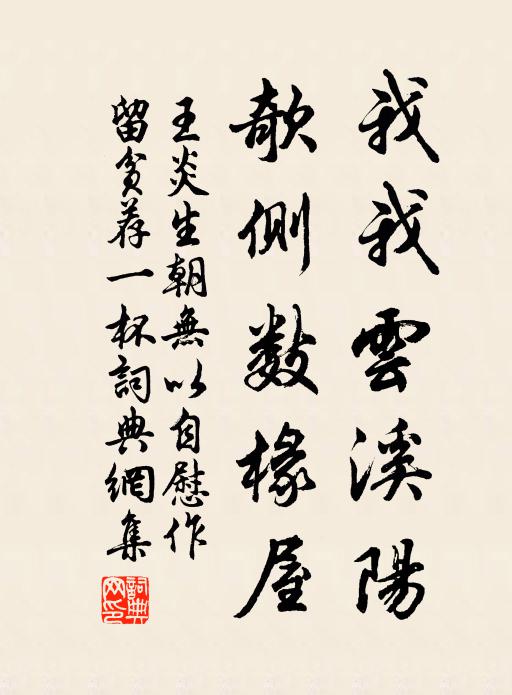 我我雲溪陽
欹側數椽屋
王炎生朝無以自慰作
留貧薦一杯詞典網集
詞典